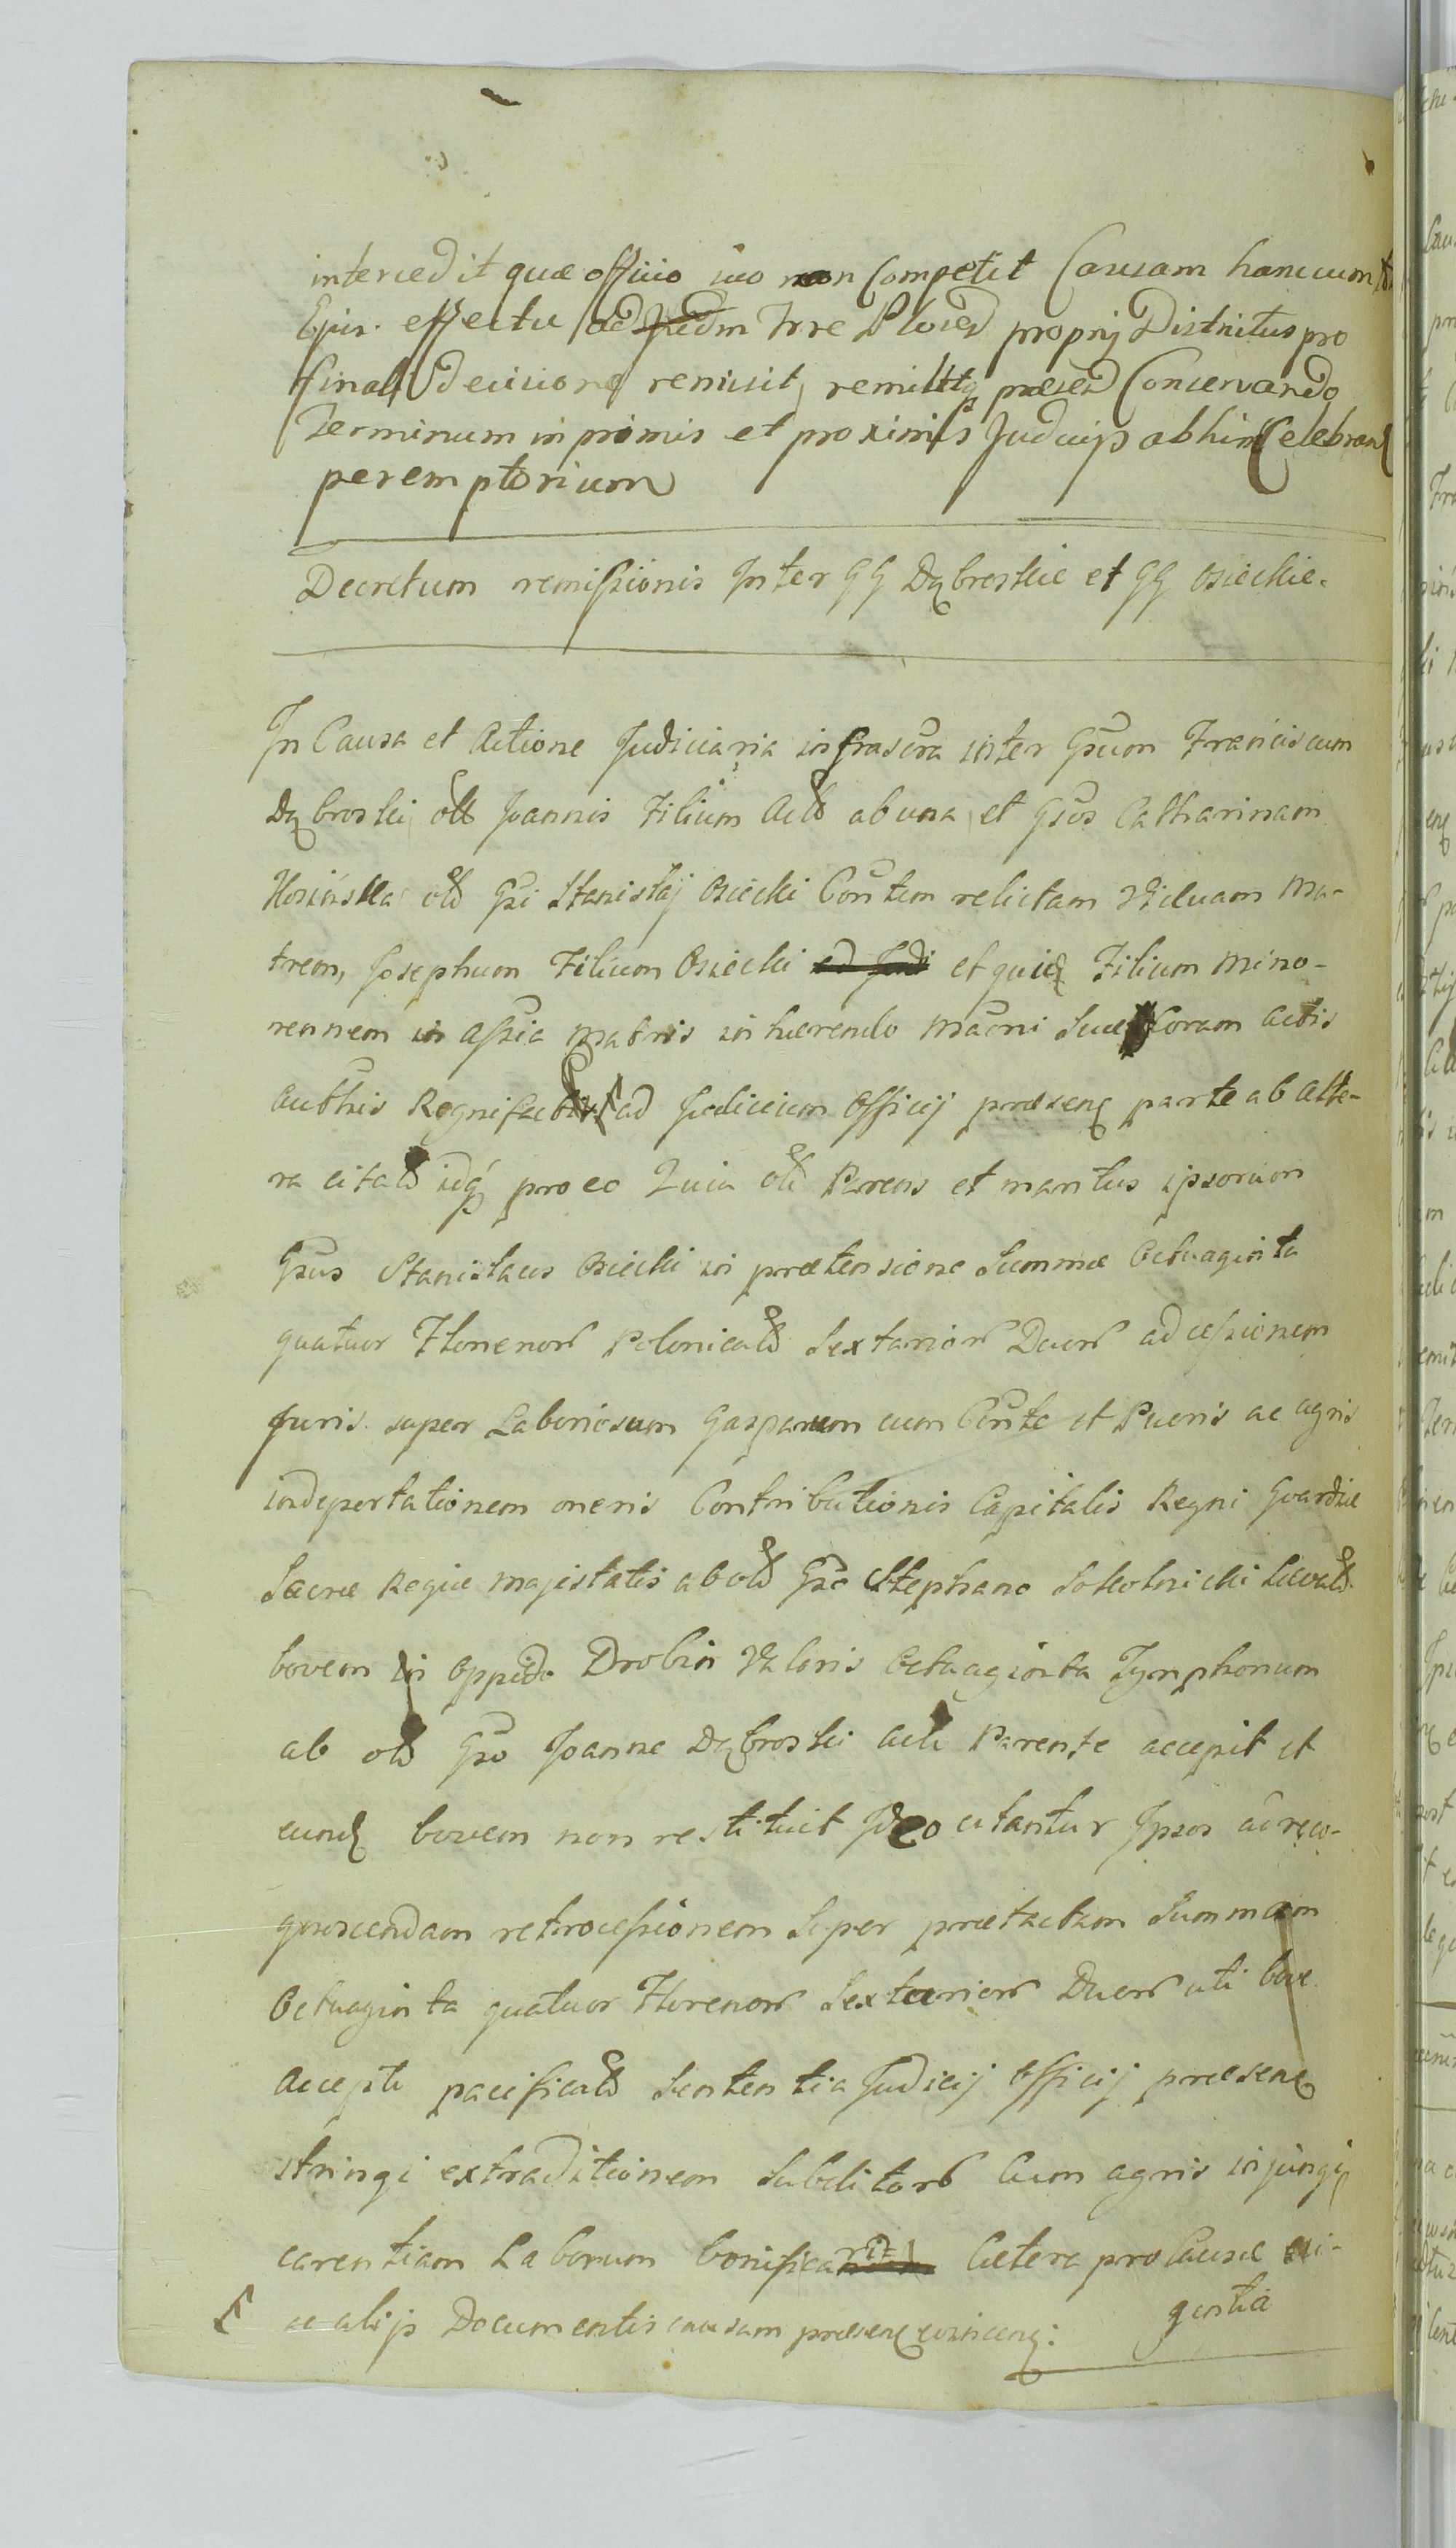 intercedit quæ officio suo non Competit Causam hanc cum toto
Ejus. effectu ad Judm Trre Ploceñ proprij Districtus pro
finali decisione remisit, remittitq præsen Conservando
Terminum in primis et proximis Judicijs abhinc Celebran
peremptorium
Decretum remissionis Inter GG Dąbroskie et GG Osieckie.
In Causa et Actione Judiciaria infrascra inter Gsum Franciscum
Dąbroski olt Joannis Filium Act ab una et Gsos Catharinam
olt Gsi Stanislaj Osiecki Contem relictam Viduam Ma-
trem, Josephum Filium Osiecki ad Judi et quidę Filium mino-
rennem in assia Matris inhærendo Macni Suæ Coram actis
authis Regni factæ ad Judicium Officij præsenę parte ab alte-
ra citat idq pro eo Quia olt Parens et maritus ipsorum
Gsus Stanislaus Osiecki in prætensione Summæ Octuaginta
quatuor Florenor Polonicalt Sextarior Duor ad cessionem
Juris super Laboriosum Gasparum cum Conte et Pueris ac agris
indeportationem oneris Contributionis Capitalis Regni Guardiæ
Sacræ Regiæ Majestatis ab olt Gso Stephano Sokolnicki
bovem in oppido Drobin Valoris Octuaginta Tymphonum
ab olt Gso Joanne Dąbroski acti Parente accepit et
eundę bovem non restituit Ideo citantur Ipsos ad reco-
gnoscendam retrocessionem Super prætactam Summam
Octuaginta quatuor Florenor Sextarior Duor uti bove
accepto pacificat Sententia Judicij Officij præsenę
stringi extraditionem Subditor Cum agris injungi
carentiam Laborum bonificari Cætera pro Causæ exi-
gentia
ac alijs Documentis causam præsenę evincenę: